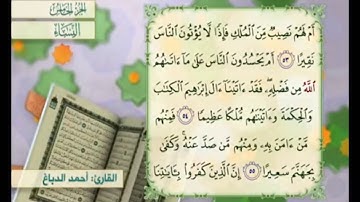 الجزء الخامس
النساء
أَمْ لَهُمْ نَصِيبٌ مِّنَ الْمُلْكِ فَإِذًا لَّا يُؤْتُونَ النَّاسَ
نَقِيرًا ٥٣ أَمْ يَحْسُدُونَ النَّاسَ عَلَىٰ مَا ءَاتَىٰهُمُ
اللَّهُ مِن فَضْلِهِۦ فَقَدْ ءَاتَيْنَا ءَالَ إِبْرَٰهِيمَ الْكِتَٰبَ
وَالْحِكْمَةَ وَءَاتَيْنَٰهُم مُّلْكًا عَظِيمًا ٥٤ فَمِنْهُم
مَّنْ ءَامَنَ بِهِۦ وَمِنْهُم مَّن صَدَّ عَنْهُ وَكَفَىٰ
بِجَهَنَّمَ سَعِيرًا ٥٥ إِنَّ الَّذِينَ كَفَرُوا بِـَٔايَٰتِنَا
القارئ: أحمد الدباغ